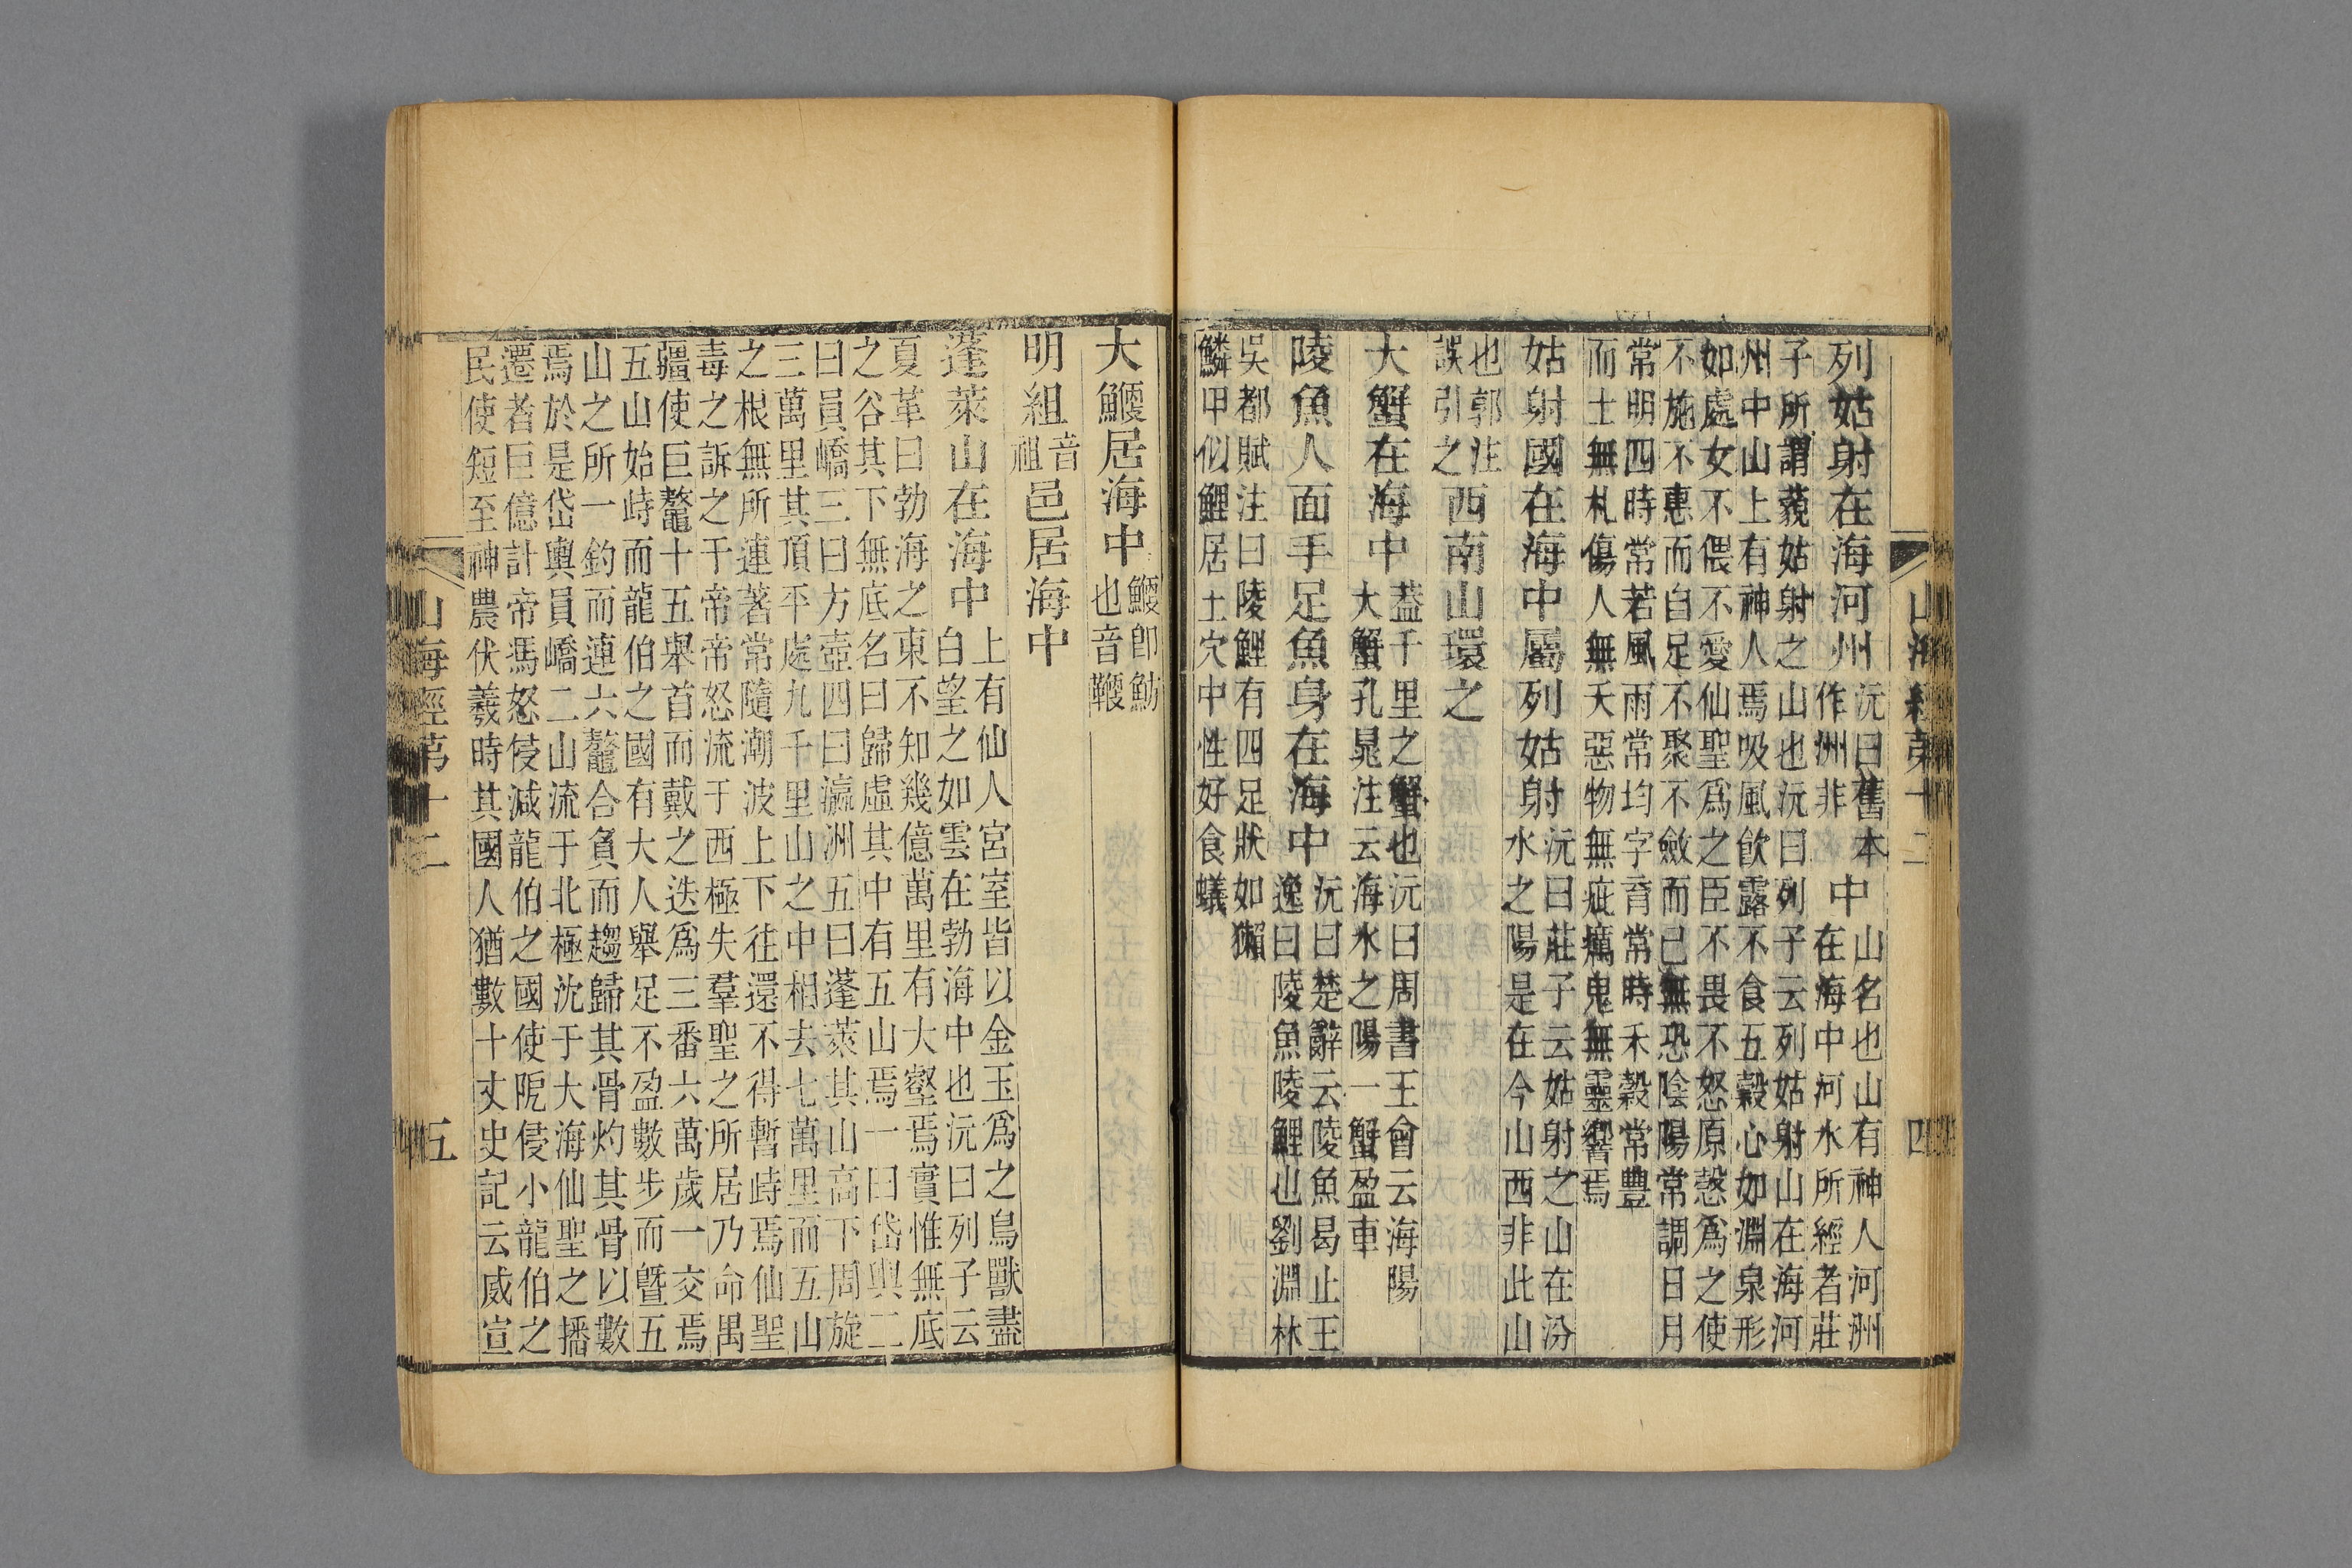 山海經第十二
四
列姑射在海河州沅曰舊本作洲非中山名也山有神人河洲在海中河水所經者莊
子所謂藐姑射之山也沅曰列子云列姑射山在海河
州中山上有神人焉吸風飲露不食五穀心如淵泉形
如處女不偎不愛仙聖爲之臣不畏不怒原愨爲之使
不施不惠而自足不聚不斂而已無恐陰陽常調日月
常明四時常若風雨常均字育常時禾穀常豐
而土無札傷人無夭惡物無疵癘鬼無靈響焉
姑射國在海中屬列姑射沅曰莊子云姑射之山在汾水之陽是在今山西非此山
也郭注誤引之西南山環之
大蟹在海中葢千里之蟹也沅曰周書王會云海陽大蟹孔晁注云海水之陽一蟹盈車
陵魚人面手足魚身在海中沅曰楚辭云陵魚曷止王逸曰陵魚陵鯉也劉淵林
吳都賦注曰陵鯉有四足狀如獺
鱗甲似鯉居土穴中性好食蟻
大鯾居海中鯾卽魴也音鞭
明組音祖邑居海中
蓬萊山在海中上有仙人宮室皆以金玉爲之鳥獸盡白望之如雲在勃海中也沅曰列子云
夏革曰勃海之東不知幾億萬里有大壑焉實惟無底
之谷其下無底名曰歸虛其中有五山焉一曰岱輿二
曰員嶠三曰方壺四曰瀛洲五曰蓬萊其山高下周旋
三萬里其頂平處九千里山之中相去七萬里而五山
之根無所連著常隨潮波上下往還不得暫峙焉仙聖
毒之訴之于帝帝怒流于西極失羣聖之所居乃命禺
疆使巨鼇十五舉首而戴之迭爲三番六萬歲一交焉
五山始峙而龍伯之國有大人舉足不盈數步而曁五
山之所一釣而連六鼇合負而趨歸其骨灼其骨以數
焉於是岱輿員嶠二山流于北極沈于大海仙聖之播
遷者巨億計帝馮怒侵減龍伯之國使阨侵小龍伯之
民使短至神農伏羲時其國人猶數十丈史記云威宣
山海經第十二
五